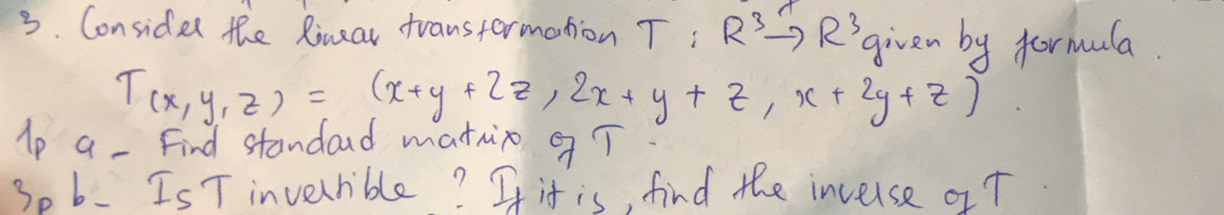 3. Consider the linear transformation T : R³ → R³ given by formula.
T(x, y, z) = (x+y+2z, 2x+y+z, x+2y+z).
1p a - Find standard matrix of T.
3p b - Is T invertible ? If it is, find the inverse of T.